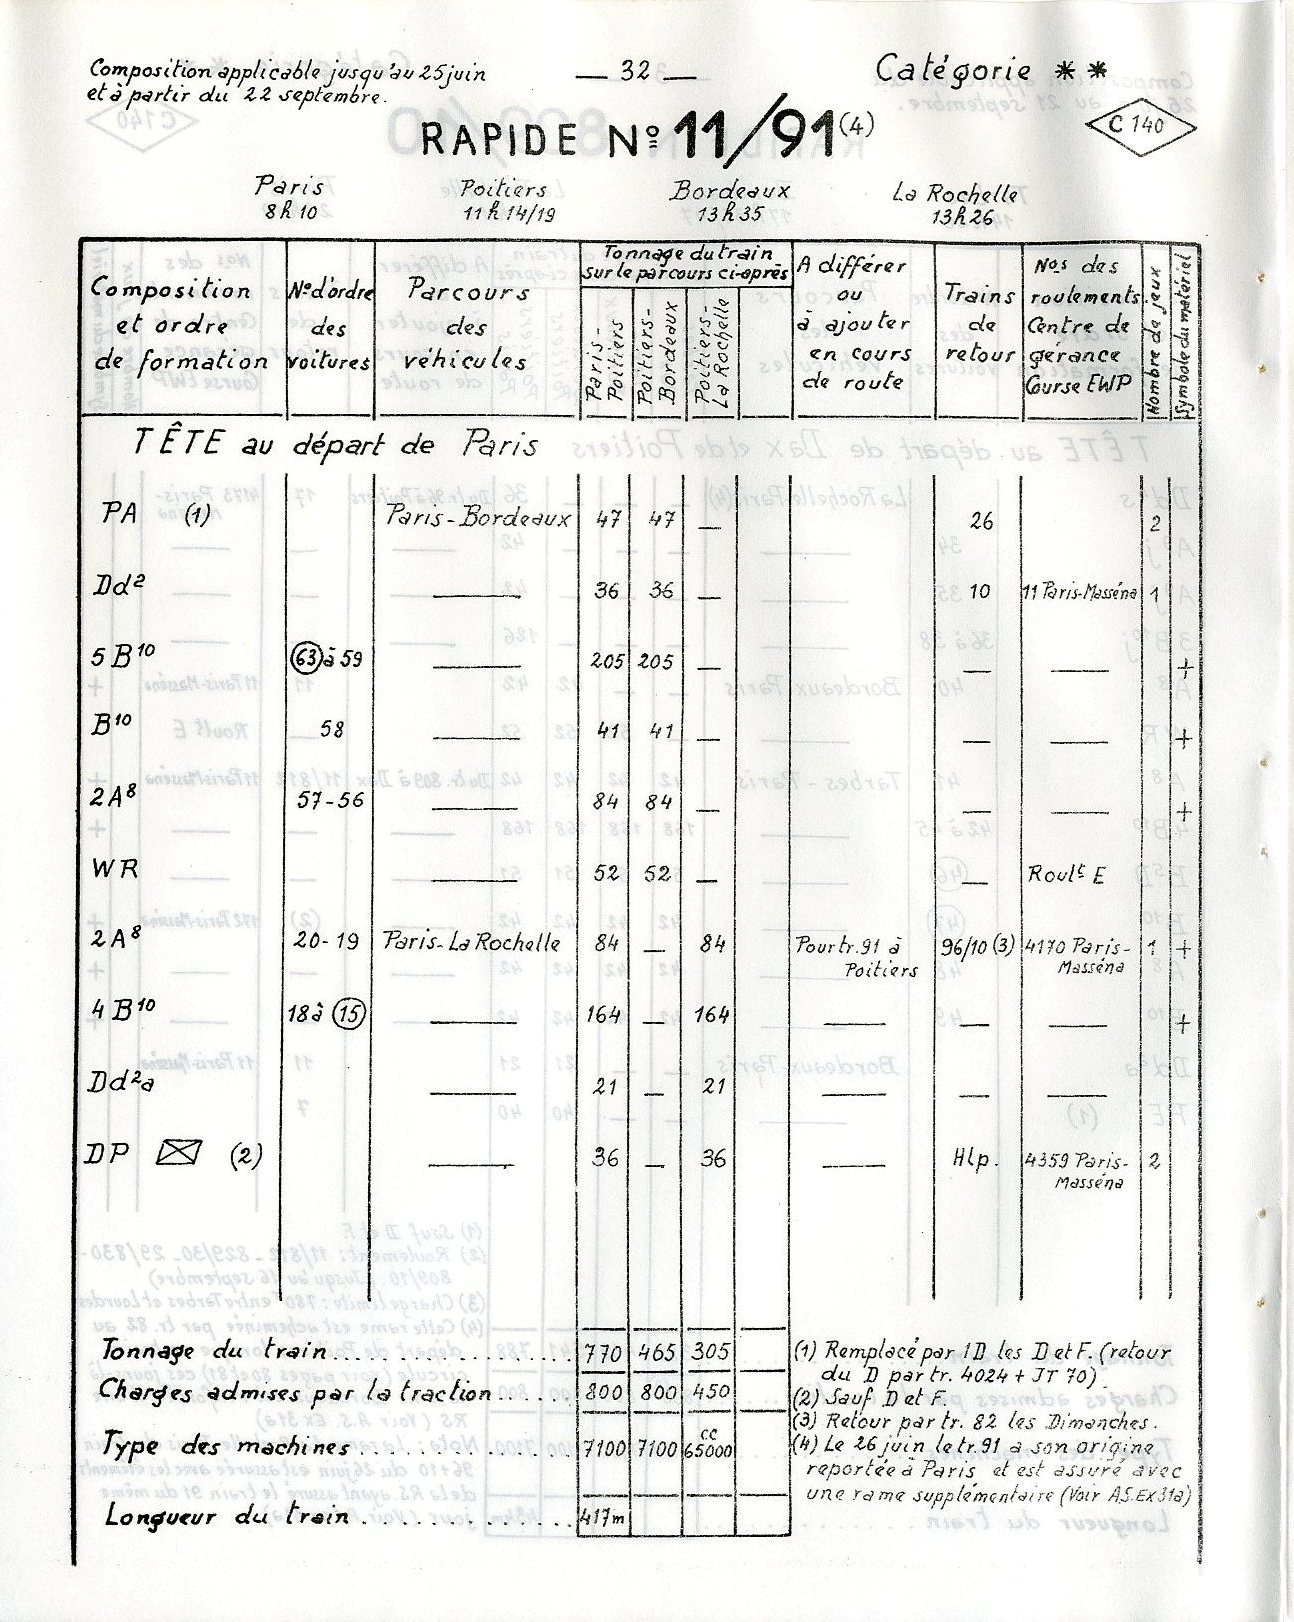 Composition applicable jusqu'au 25 juin
et à partir du 22 septembre.
— 32 —
Catégorie * *
RAPIDE Nº 11/91 (4)
C 140
Paris Poitiers Bordeaux La Rochelle
8h10 11h14/19 13h35 13h26
Composition et ordre de formation
Nº d'ordre des voitures
Parcours des véhicules
Tonnage du train sur le parcours ci-après
Paris-Poitiers
Poitiers-Bordeaux
Poitiers-La Rochelle
A différer ou à ajouter en cours de route
Trains de retour
Nos des roulements Centre de gérance Course EWP
Nombre de jeux
Symbole du matériel
TÊTE au départ de Paris
PA (1) Paris-Bordeaux 47 47 — 26 2
Dd² —— 36 36 — 10 11 Paris-Masséna 1
5 B¹⁰ (63) à 59 —— 205 205 — — —— +
B¹⁰ 58 —— 41 41 — — —— +
2 A⁸ 57-56 —— 84 84 — — —— +
WR —— 52 52 — — Roulᵗ E
2 A⁸ 20-19 Paris-La Rochelle 84 — 84 Pour tr. 91 à Poitiers 96/10 (3) 4170 Paris-Masséna 1 +
4 B¹⁰ 18 à (15) —— 164 — 164 —— — —— +
Dd²a —— 21 — 21 —— — ——
DP (2) —— 36 — 36 —— Hlp. 4359 Paris-Masséna 2
Tonnage du train 770 465 305
Charges admises par la traction 800 800 450
Type des machines 7100 7100 CC 65000
Longueur du train 417m
(1) Remplacé par 1D les D et F. (retour
du D par tr. 4024 + JT 70)
(2) Sauf D et F.
(3) Retour par tr. 82 les Dimanches.
(4) Le 26 juin le tr. 91 a son origine
reportée à Paris et est assuré avec
une rame supplémentaire (Voir A.S. Ex 31a)